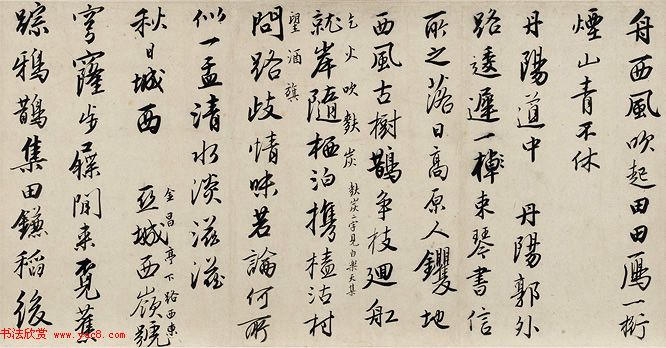 舟西風吹起田田雁一行
煙山青不休
丹陽道中 丹陽郭外
路逶遲一棹束琴書信
所之落日高原人钁地
西風古樹鵲爭枝迴船
乞火吹麩炭 麩炭二字見白樂天集
就岸隨栖泊攜榼沽村
望酒旗
問路歧情味若論何所
似一盂清水淡滋滋
秋日城西 亞城西嶺號
金昌亭下路西東
穹窿步屧閒來覓舊
蹤鴉鵲集田鐮稻後
书法欣赏 www.yac8.com